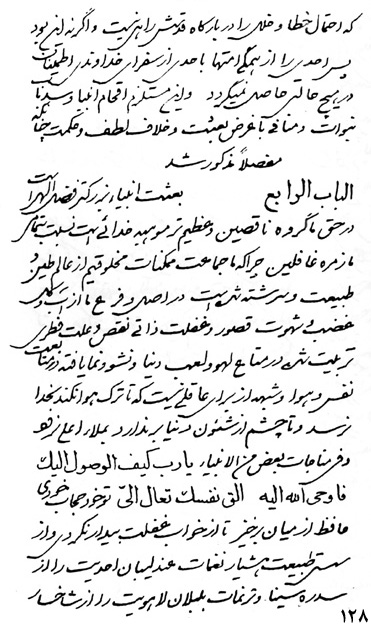 که احتمال خطا و خللی را در بارگاه قدسش راه نیست و اگر نه این بود
پس احدی را از همگی امتها با حدی از سفرای خداوندی اطمینان
در هیچ حالتی حاصل نمیگردد و این مستلزم افحام انبیا و سد باب
نبوات و منافی با غرض بعثت و خلاف لطف و حکمت چنانکه
مفصلاً مذکور شد
الباب الرابع بعثت انبیاء بزرکتر فضل الهی است
در حق ما گروه ناقصین و عظیم تر موهبه خدائی است نسبت بتمامی
ما زمره غافلین چرا که ما جماعت ممکنات مخلوقیم از عالم طین و
طبیعت و سرشته شده است در اصل و فرع ما از
غضب و شهوت قصور و غفلت ذاتی نقص و علت فطری
تربیت شده در متاع لهو و لعب دنیا و نشو و نما یافته در متابعت
نفس و هوا و شبهه از برای عاقلی نیست که تا ترک هوا نکند بخدا
نرسد و تا چشم از شئون دنیا بر ندارد بملاء اعلی نرود
و فی مناجات بعض من الانبیاء یا رب کیف الوصول الیک
فاوحی الله الیه الق نفسک تعال الیّ تو خود حجاب خودی
حافظ از میان برخیز تا از خواب غفلت بیدار نکردی و از
مستی طبیعت هشیار نغمات عندلیبان احدیت را از
سدره سینا و ترنمات بلبلان لاهوتیت را از شاخسار
۱۲۸